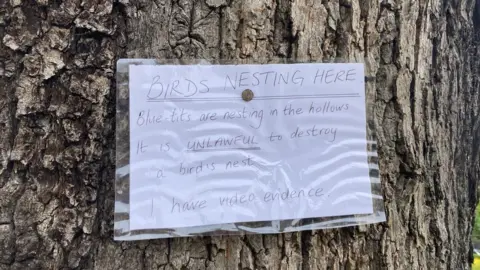 BIRDS NESTING HERE
Blue-tits are nesting in the hollows
It is UNLAWFUL to destroy
a bird's nest
I have video evidence.